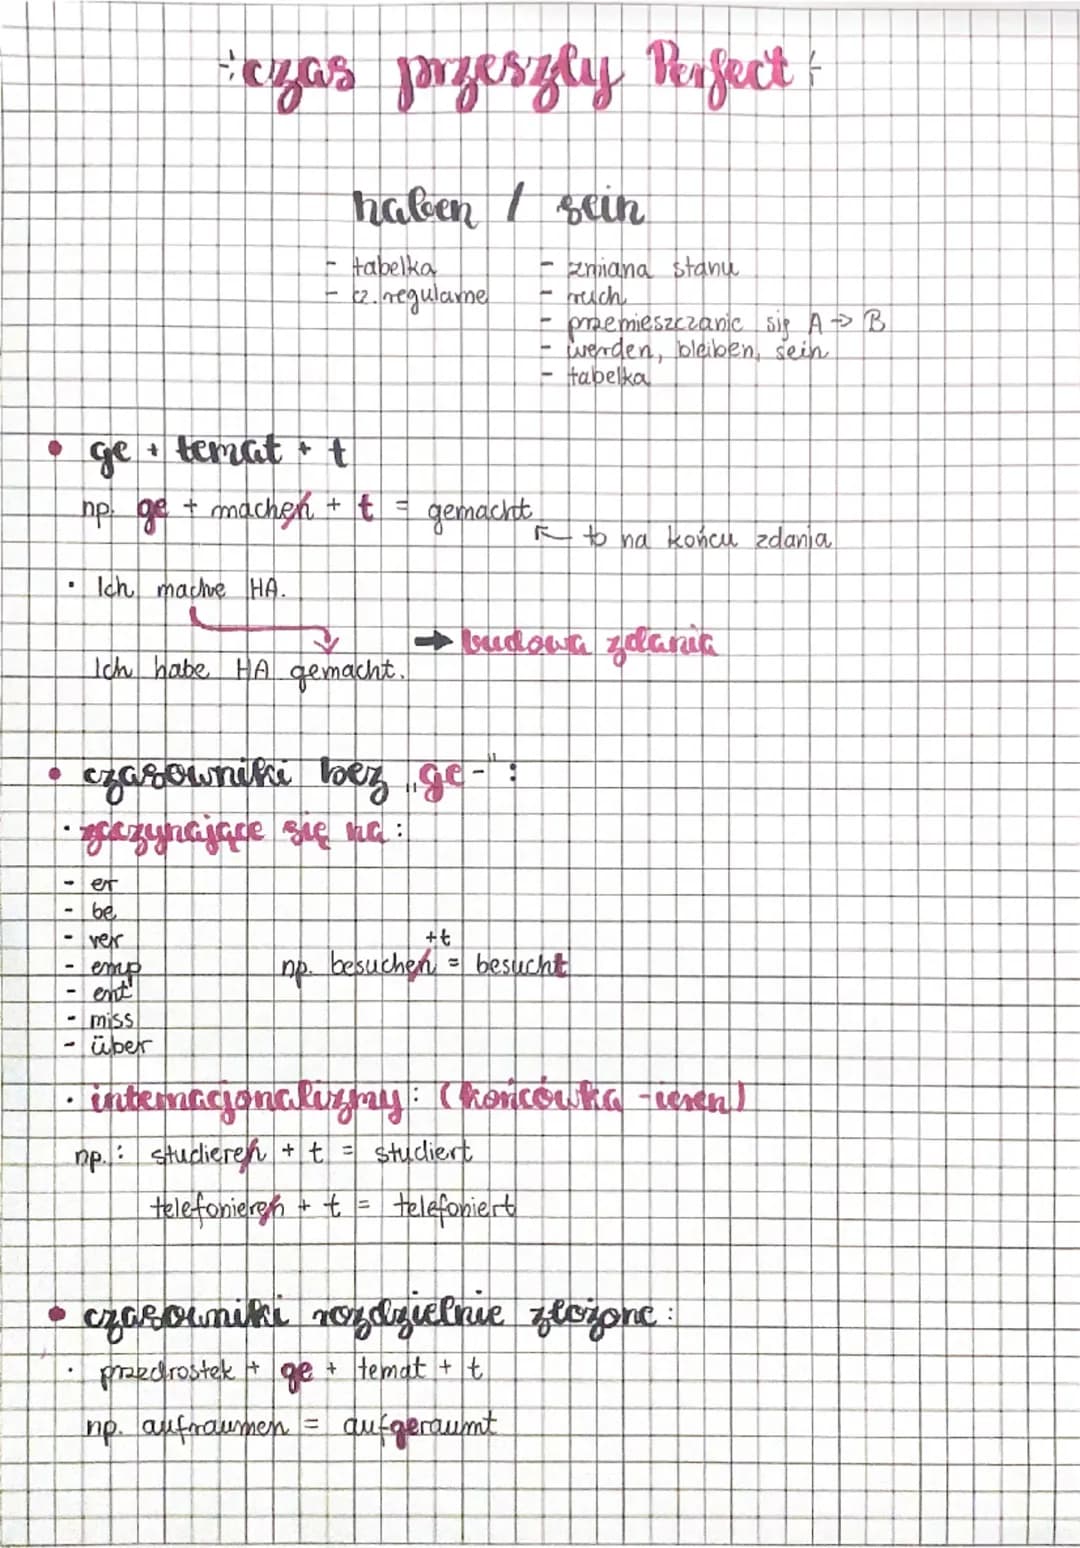 czas przeszły Perfect
haben / sein
- tabelka
- cz. regularne
- zmiana stanu
- ruch
- przemieszczanie się A → B
- werden, bleiben, sein
- tabelka
• ge + temat + t
np. ge + machen + t = gemacht
↖ to na końcu zdania
• Ich mache HA.
→ budowa zdania
Ich habe HA gemacht.
• czasowniki bez „ge-":
· zaczynające się na:
- er
- be
- ver
- emp
- ent
- miss
- über
+t
np. besuchen = besucht
· internacjonalizmy: (końcówka -ieren)
np.: studieren + t = studiert
telefonieren + t = telefoniert
• czasowniki rozdzielnie złożone:
· przedrostek + ge + temat + t
np. aufraumen = aufgeraumt